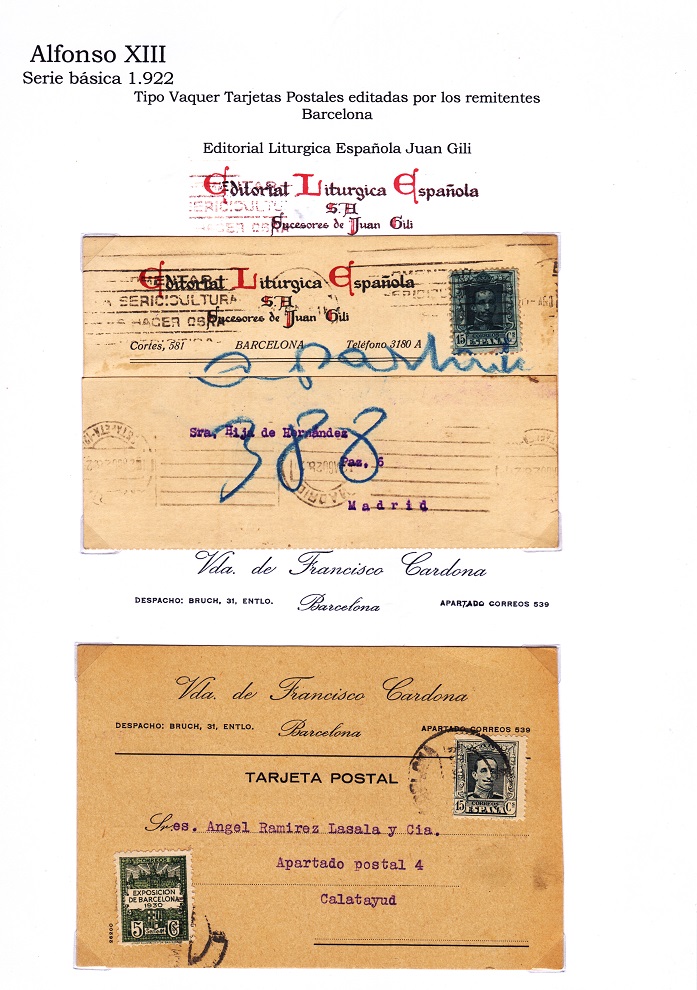 Alfonso XIII
Serie básica 1.922
Tipo Vaquer Tarjetas Postales editadas por los remitentes
Barcelona
Editorial Liturgica Española Juan Gili
Editorial Liturgica Española
S.A
Sucesores de Juan Gili
Editorial Liturgica Española
S.A
Sucesores de Juan Gili
SERICICULTURA
HACER OBRA
15 CORREOS Cs
ESPAÑA
Cortes, 581 BARCELONA Teléfono 3180 A
apartado
388
Sra. Hija de Hernández
Paz. 6
Madrid
MADRID
Vda. de Francisco Cardona
DESPACHO: BRUCH, 31, ENTLO. Barcelona APARTADO CORREOS 539
Vda. de Francisco Cardona
DESPACHO: BRUCH, 31, ENTLO. Barcelona APARTADO CORREOS 539
TARJETA POSTAL
15 CORREOS Cs
ESPAÑA
Sres. Angel Ramirez Lasala y Cia.
Apartado postal 4
Calatayud
CORREOS
EXPOSICIÓN
DE BARCELONA
1930
5 Cs
26200